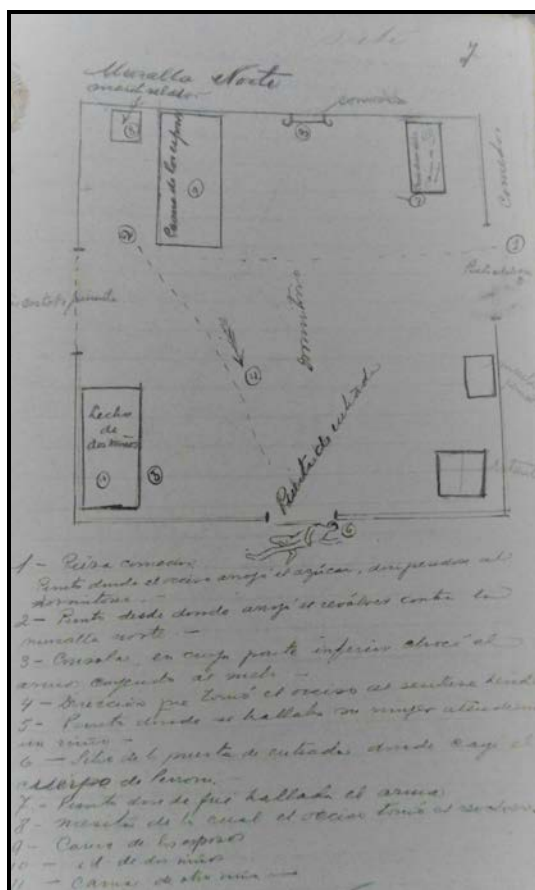 7
Muralla Norte
Comedor
Cama de los esposos
dormitorio
Puerta de entrada
Lecho
de
dos niños
1 – Pieza comedor
Punto donde el occiso arrojó el azúcar, al
dormitorio. –
2 – Punto desde donde arrojó el revólver contra la
muralla norte –
3 – Consola, en cuya parte inferior chocó el
arma cayendo al suelo –
4 – Dirección que tomó el occiso al sentirse
5 – Punto donde se hallaba su mujer
un niño –
6 – Sitio de la puerta de entrada donde cayó el
cuerpo de
7 – Punto donde fué hallada el arma
8 – mesita de la cual el occiso tomó el revólver
9 – Cama de los esposos
10 – id. de dos niños
11 – Cama de otra niña –